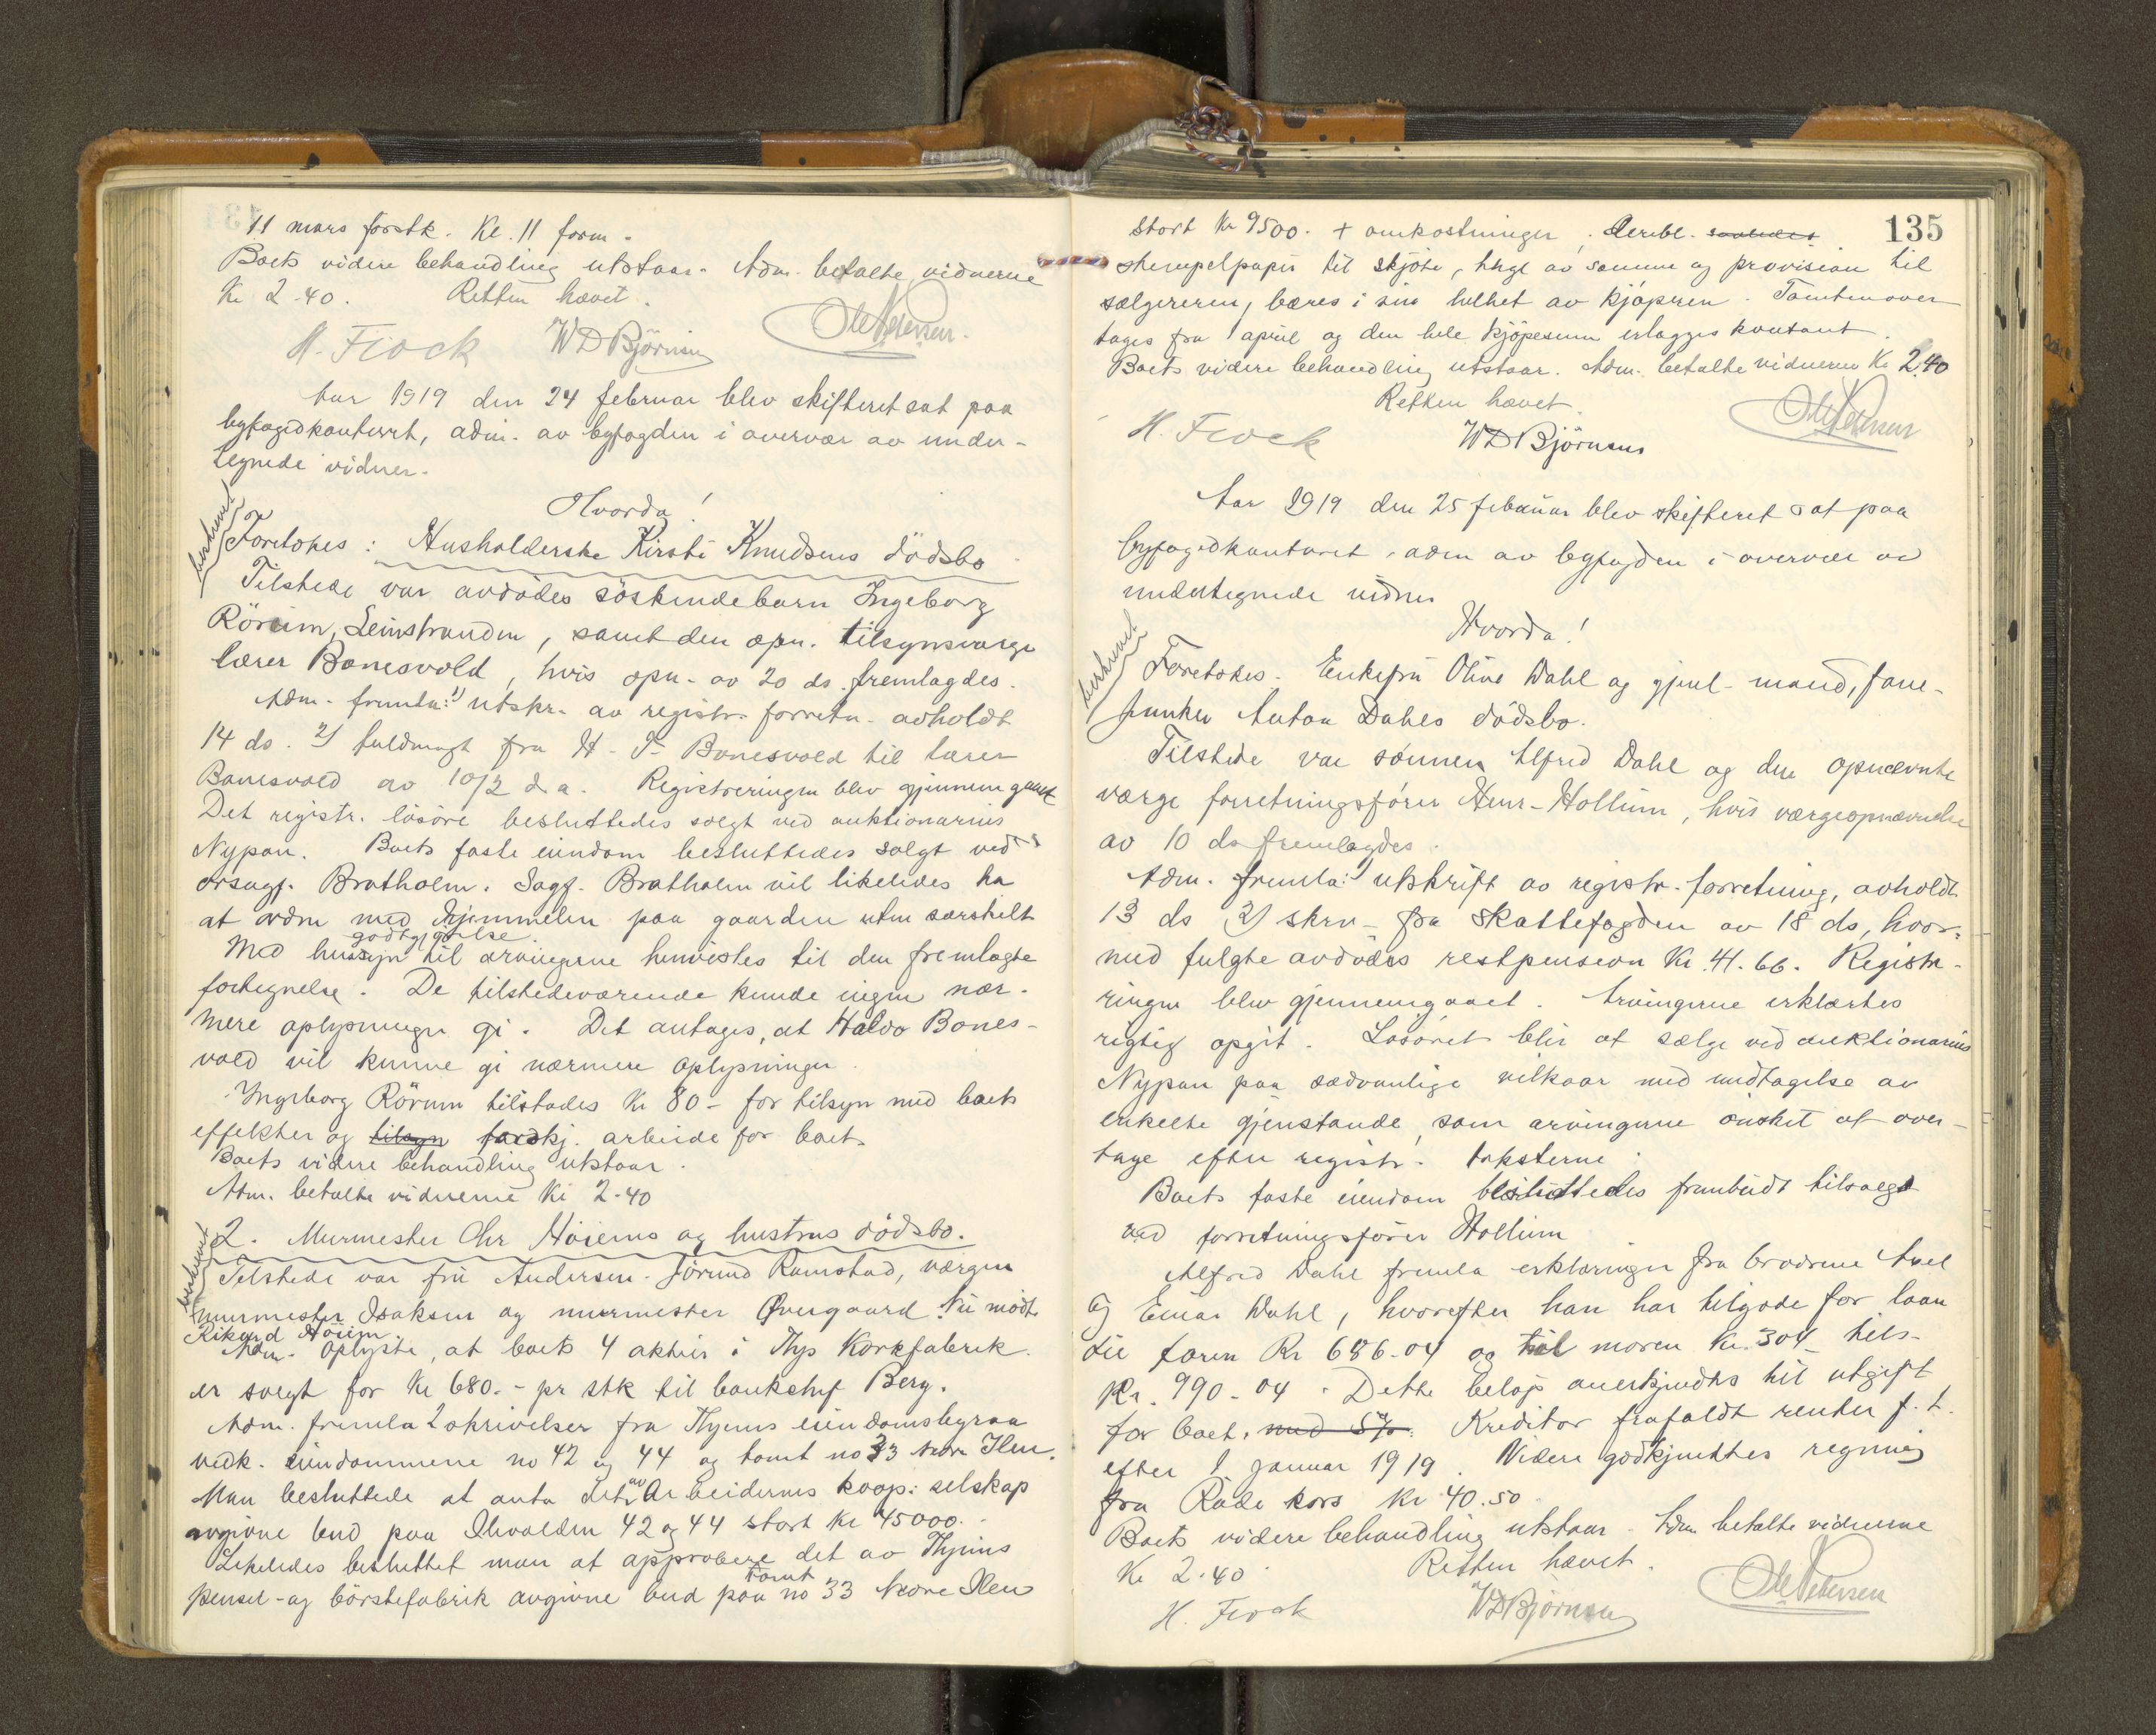 11 mars förstk. Kl. 11 form.
Boets videre behandling utstaar. Adm. betalte vidnerne
Kr 2.40. Retten hævet.
H. Flock WD Björnsen Ole Petersen.
Aar 1919 den 24 februar blev skifteret sat paa
byfogedkontoret, adm. av byfogden i overvær av under-
tegnede vidner.
Hvorda!
beskrevet
Foretokes: Husholderske Kirsti Knudsens dödsbo
Tilstede var avdödes söskendebarn Ingeborg
Rörum, Leinstranden, samt den opn. tilsynsværge
lærer Bonesvold, hvis opn. av 20 ds. fremlagdes.
Adm. fremla: 1) utskr. av registr. forretn. avholdt
14 ds. 2) fuldmagt fra H. T. Bonesvold til lærer
Bonesvold av 10/2 d.a. Registreringen blev gjennemgaaet
Det registr. lösöre besluttedes solgt ved auktionarius
Nypan. Boets faste eiendom besluttedes solgt ved
orsagf. Bratholm. Sagf. Bratholm vil likeledes ha
at ordne med hjemmelen paa gaarden uten særskilt
godtgjörelse
Med hensyn til arvingerne henvistes til den fremlagte
fortegnelse. De tilstedeværende kunde ingen nær-
mere oplysninger gi. Det antages, at Haldo Bones-
vold vil kunne gi nærmere oplysninger.
Ingeborg Rörum tilstodes Kr 80 - for tilsyn med boets
effekter og tilsyn forskj. arbeide for boet.
Boets videre behandling utstaar.
Adm. betalte vidnerne Kr 2.40
beskrevet
2. Murmester Chr Höiems og hustrus dödsbo.
Tilstede var fru Andersen. Jörund Ramstad, værgen
murmester Isaksen og murmester Øvergaard. Nu mödt
Rikard Höiem.
Adm. oplyste, at boets 4 aktier i Thjs Korkfabrik
er solgt for Kr 680.- pr stk til bankchef Berg.
Adm. fremla 2 skrivelser fra Thjems eiendomsbyraa
vedk. eiendommene no 42 og 44 og tomt no 33 Nedre Ilen.
Man besluttede at anta det av Arbeidernes koop. selskap
avgivne bud paa Ilevolden 42 og 44 stort Kr 45000.-
Likeledes besluttet man at approbere det av Thjems
pensel- og börstefabrik avgivne bud paa tomt no 33 Nedre Ilen
135
stort Kr 9500. + omkostninger, deribl. saaledes
stempelpapir til skjöte, tingl av samme og provision til
sælgereren, bæres i sin helhet av kjöperen. Tomten over
tages fra 1 april og den hele kjöpesum erlægges kontant.
Boets videre behandling utstaar. Adm. betalte vidnerne Kr 2.40
Retten hævet.
H. Flock WD Björnsen Ole Petersen
Aar 1919 den 25 februar blev skifteret sat paa
byfogedkontoret, adm av byfogden i overvær av
undertegnede vidner
Hvorda!
beskrevet
Foretokes. Enkefru Oline Dahl og gjenl. mand, fane-
junker Anton Dahls dödsbo.
Tilstede var sönnen Alfred Dahl og den opnævnte
værge forretningsförer Henr. Hollum, hvis værgeopnævnelse
av 10 ds fremlagdes.
Adm. fremla: 1) utskrift av registr. forretning, avholdt
13 ds 2) skrv. fra Skattefogden av 18 ds, hvor-
med fulgte avdödes restpension Kr. 41.66. Registre-
ringen blev gjennemgaaet. Arvingerne erklærtes
rigtig opgit. Lösöret blir at sælge ved auktionarius
Nypan paa sædvanlige vilkaar med undtagelse av
enkelte gjenstande, som arvingerne önsket at over-
tage efter registr. taksterne.
Boets faste eiendom besluttedes frembudt tilsalgs
ved forretningsförer Hollum
Alfred Dahl fremla erklæringer fra brödrene Axel
og Einar Dahl, hvorefter han har tilgode for laan
til faren Kr 686.04 og til moren Kr. 304 tils.
Kr. 990.04. Dette belöp anerkjendtes til utgift
for boet. med 5%. Kreditor frafaldt renter f. t.
efter 1 januar 1919. Videre godkjendtes regning
fra Röde kors Kr 40.50
Boets videre behandling utstaar. Adm betalte vidnerne
Kr 2.40 Retten hævet.
H. Flock WD Björnsen Ole Petersen